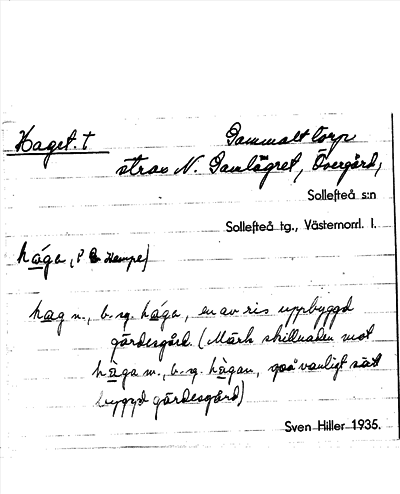 Haget. t Gammalt torp
strax N. Gamlägret, Övergård,
Sollefteå s:n
Sollefteå tg., Västernorrl. l.
hága, (P Hampe)
hag n., b. sg. hága, en av ris uppbyggd
gärdesgård. (Märk skillnaden mot
hàga m., b. sg. hàgan, på vanligt sätt
byggd gärdesgård)
Sven Hiller 1935.